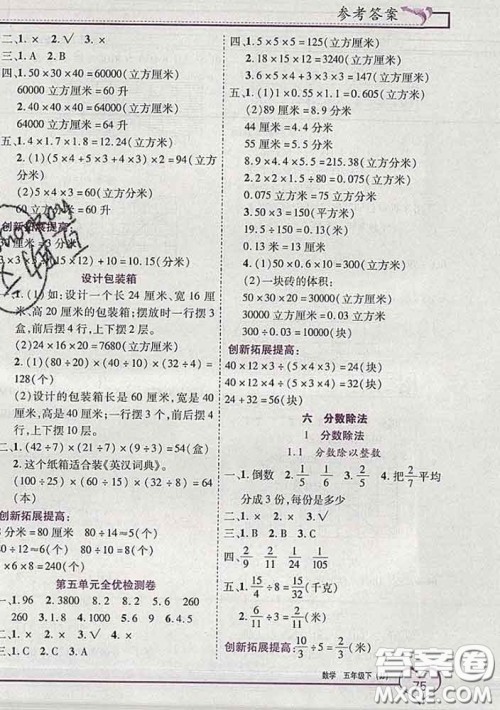 参考答案
二、1.× 2.√ 3.×
三、1.A 2.B
四、1.50×30×40=60000(立方厘米)
60000立方厘米=60升
2.40×40×40=64000(立方厘米)
64000立方厘米=64升
五、1.4×1.7×1.8=12.24(立方厘米)
2.(1)(5×4+5×3+4×3)×2=94(立方分米)
(2)5×4×3=60(立方分米)
60立方分米=60升
创新拓展提高:
(3×3×3+15)+10=10.15(立方分米)
设计包装箱
一、1.(1)如:设计一个长24厘米、宽16厘米、高20厘米的包装箱;摆放时一行摆3个,前后摆4行,上下摆2层。
(2)24×16×20=7680(立方厘米)
2.(1)(80÷20)×(80÷10)×(32÷8)=128(个)
(2)设计的包装箱长是60厘米,宽是30厘米,高是40厘米;一行摆3个,前后摆4行,上下摆10层。
二、1.(42÷7)×(21÷7)×(9÷3)=54(盒)
2.这个纸箱适合装《英汉词典》。
(100÷25)×(60÷15)×(32÷8)=64(本)
创新拓展提高:
8分米=80厘米 80÷14≈5(个)
80÷12≈6(个) 80÷10=8(个)
5×6×8=240(个)
第五单元全优检测卷
一、1.96 2.3800 8.2 6.2 6200
260 260 3.1 4.8 5.9
二、1.× 2.× 3.√ 4.× 5.×
三、1.C 2.A 3.B
四、1.5×5×5=125(立方分米)
2.18×15×12=3240(立方厘米)
3.5×6×4+3×3×3=147(立方分米)
五、1.(1)1×0.55×1.1=0.605(立方米)
(2)89厘米=8.9分米
44厘米=4.4分米
55厘米=5.5分米
8.9×4.4×5.5=215.38(立方分米)
2.50×1.5×0.001=0.075(立方米)
0.075立方米=75立方分米
3.50×3=150(平方米)
19.5÷150=0.13(米)
0.13米=13厘米
4.(1)50×30×20=30000(立方厘米)
(2)一块砖的体积:
50×30×20=30000(立方厘米)
30000立方厘米=0.03立方米
300÷0.03=10000(块)
创新拓展提高:
40×12×3÷(5×4×3)=24(块)
40×12×4÷(5×3×4)=32(块)
24+32=56(块)
六 分数除法
1 分数除法
1.1 分数除以整数
一、1.倒数 2.1/5 1/5 3.4/15 4.把2/7平均分成3份,每份是多少
二、1.× 2.× 3.√
三、1.A 2.B
四、3/10 1/12 1/24 1/105
五、1.15/4÷8=15/32(千克)
2.6/11÷3=2/11(米)
创新拓展提高:10/3÷5=2/3(米)
数学 五年级下
75
答案圈
MXQE.COM